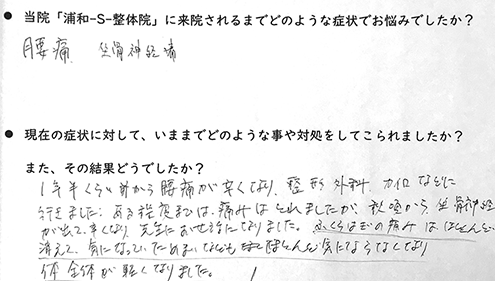 ● 当院「浦和-S-整体院」に来院されるまでどのような症状でお悩みでしたか？
腰痛 坐骨神経痛
● 現在の症状に対して、いままでどのような事や対処をしてこられましたか？
また、その結果どうでしたか？
1年半くらい前から腰痛が辛くなり、整形外科、カイロなどに
行きました。ある程度までは痛みはとれましたが、秋頃から、坐骨神経
が出て、辛くなり 先生にお世話になりました。ふくらはぎの痛みはほとんど
消えて、気になっていためまいなども ほとんど気にならなくなり
体全体が軽くなりました。